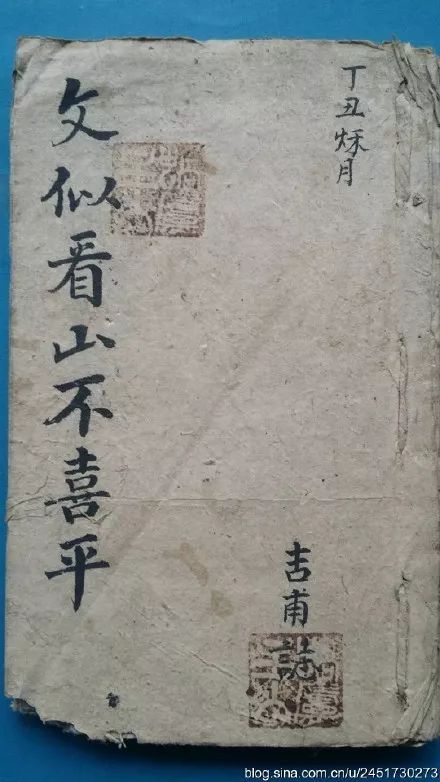 丁丑秌月
文似看山不喜平
吉甫
誌
blog.sina.com.cn/u/2451730273